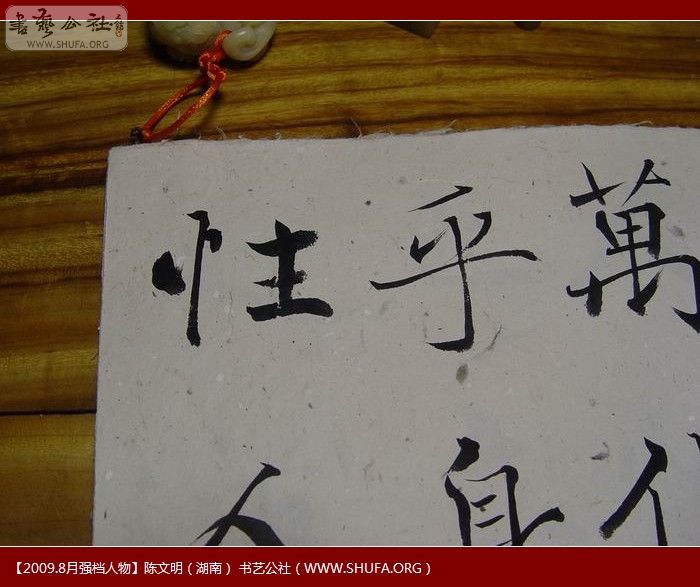 書藝公社
WWW.SHUFA.ORG
萬
乎身
性
【2009.8月强档人物】陈文明（湖南） 书艺公社（WWW.SHUFA.ORG）